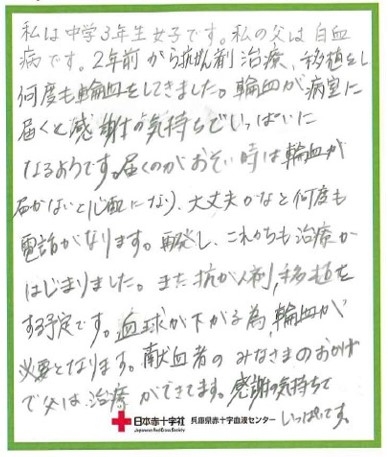 私は中学3年生女子です。私の父は白血
病です。2年前から抗がん剤治療、移植をし
何度も輸血をしてきました。輸血が病室に
届くと感謝の気持ちでいっぱいに
なるようです。届くのがおそい時は輸血が
届かないと心配になり、大丈夫かなと何度も
電話がなります。再発し、これからも治療が
はじまりました。また抗がん剤,移植を
する予定です。血球が下がる為,輸血が
必要となります。献血者のみなさまのおかげ
で父は治療ができてます。感謝の気持ちで
いっぱいです。
日本赤十字社 兵庫県赤十字血液センター
Japanese Red Cross Society